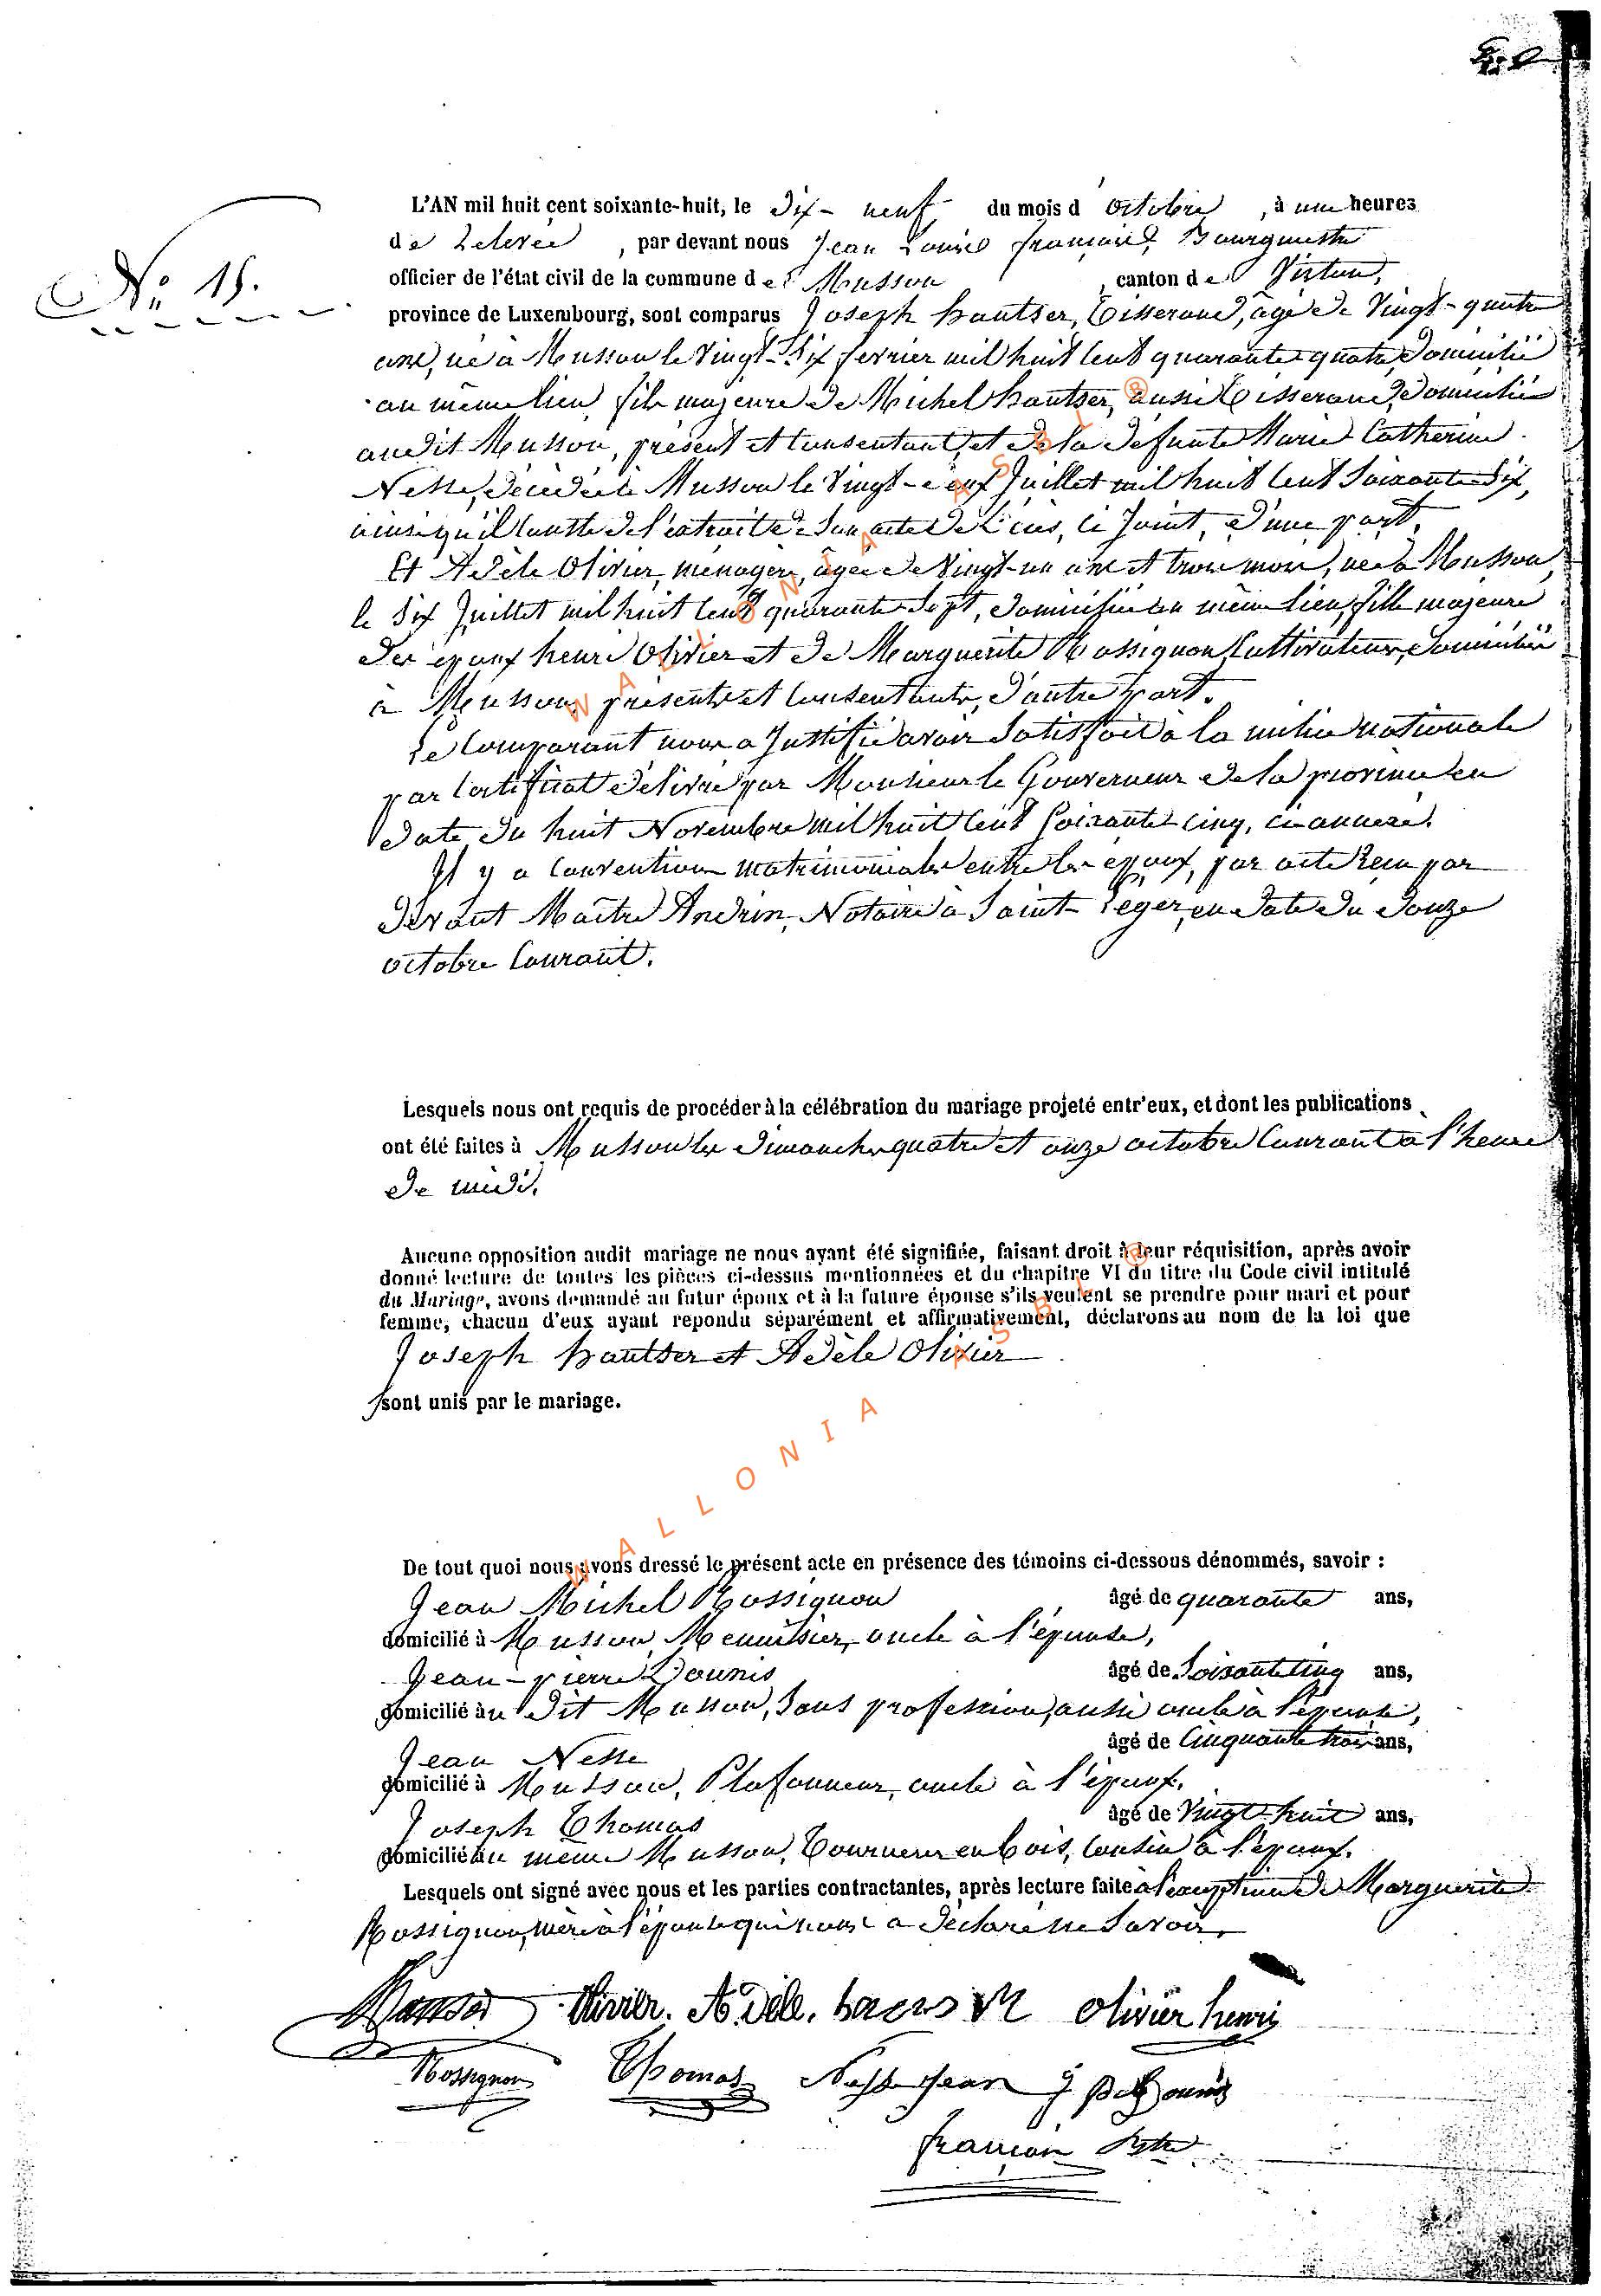 N° 15.
L'AN mil huit cent soixante-huit, le Dix-neuf du mois d'octobre, à une heures
de relevée, par devant nous Jean Louis françois, Bourgmestre
officier de l'état civil de la commune de Musson, canton de Virton,
province de Luxembourg, sont comparus Joseph hautser, Tisserand, âgé de Vingt-quatre
ans, né à Musson le vingt-six fevrier mil huit cent quarante-quatre, domicilié
au même lieu, fils majeure de Michel hautser, aussi Tisserand, domicilié
audit Musson, présent et consentant, et de la défunte Marie Catherine
Nesse, décédée à Musson le vingt-deux Juillet mil huit cent soixante-six,
ainsi qu'il conste de l'extrait de son acte de décès, ci-joint, d'une part.
Et Adèle Olivier, ménagère, âgée de Vingt-un ans et trois mois, née à Musson,
le six Juillet mil huit cent quarante-sept, domiciliée au même lieu, fille majeure
des époux henri Olivier et de Marguerite Rossignon, Cultivateurs, domiciliés
à Musson, présents et consentants, d'autre part.
Le Comparant nous a justifié avoir satisfait à la milice nationale
par certificat délivré par Monsieur le Gouverneur de la province en
date du huit Novembre mil huit cent soixante-cinq, ci-annexé.
Il y a Conventions matrimoniales entre les époux, par acte reçu par
devant Maître Andrin, Notaire à Saint-Léger, en date du douze
octobre Courant.
Lesquels nous ont requis de procéder à la célébration du mariage projeté entr'eux, et dont les publications
ont été faites à Musson les dimanches quatre et onze octobre Courant à l'heure
de midi.
Aucune opposition audit mariage ne nous ayant été signifiée, faisant droit à leur réquisition, après avoir
donné lecture de toutes les pièces ci-dessus mentionnées et du chapitre VI du titre du Code civil intitulé
du Mariage, avons demandé au futur époux et à la future épouse s'ils veulent se prendre pour mari et pour
femme, chacun d'eux ayant repondu séparément et affirmativement, déclarons au nom de la loi que
Joseph hautser et Adèle Olivier
sont unis par le mariage.
De tout quoi nous avons dressé le présent acte en présence des témoins ci-dessous dénommés, savoir :
Jean Michel Rossignon âgé de quarante ans,
domicilié à Musson, Menuisier, oncle à l'épouse,
Jean-pierre Dounis âgé de Soixante cinq ans,
domicilié au dit Musson, sans profession, aussi oncle à l'épouse,
Jean Nesse âgé de Cinquante trois ans,
domicilié à Musson, Plafonneur, oncle à l'époux.
Joseph Thomas âgé de Vingt-huit ans,
domicilié au même Musson, Tourneur en bois, Cousin à l'époux.
Lesquels ont signé avec nous et les parties contractantes, après lecture faite à l'exception de Marguerite
Rossignon, mère à l'épouse qui nous a déclaré ne savoir.
Olivier. Adèle. Olivier henri
Rossignon Thomas Nesse jean
françois
WALLONIA ASBL ®
WALLONIA ASBL ®